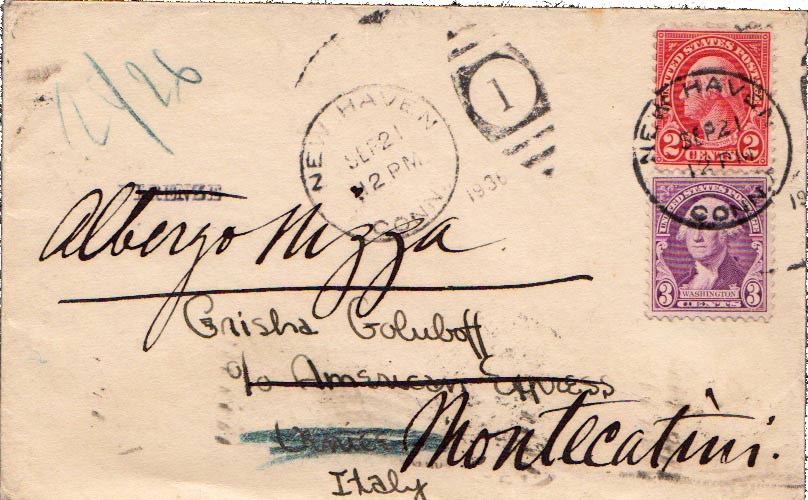 UNITED STATES POSTAGE
2 CENTS 2
NEW HAVEN
SEP 21
12 PM
CONN.
1936
1
NEW HAVEN
SEP 21
12 PM
CONN.
UNITED STATES POSTAGE
3 WASHINGTON 3
CENTS
24/26
FIRENZE
Albergo Nizza
Grisha Goluboff
c/o American Express
Venice
Montecatini.
Italy